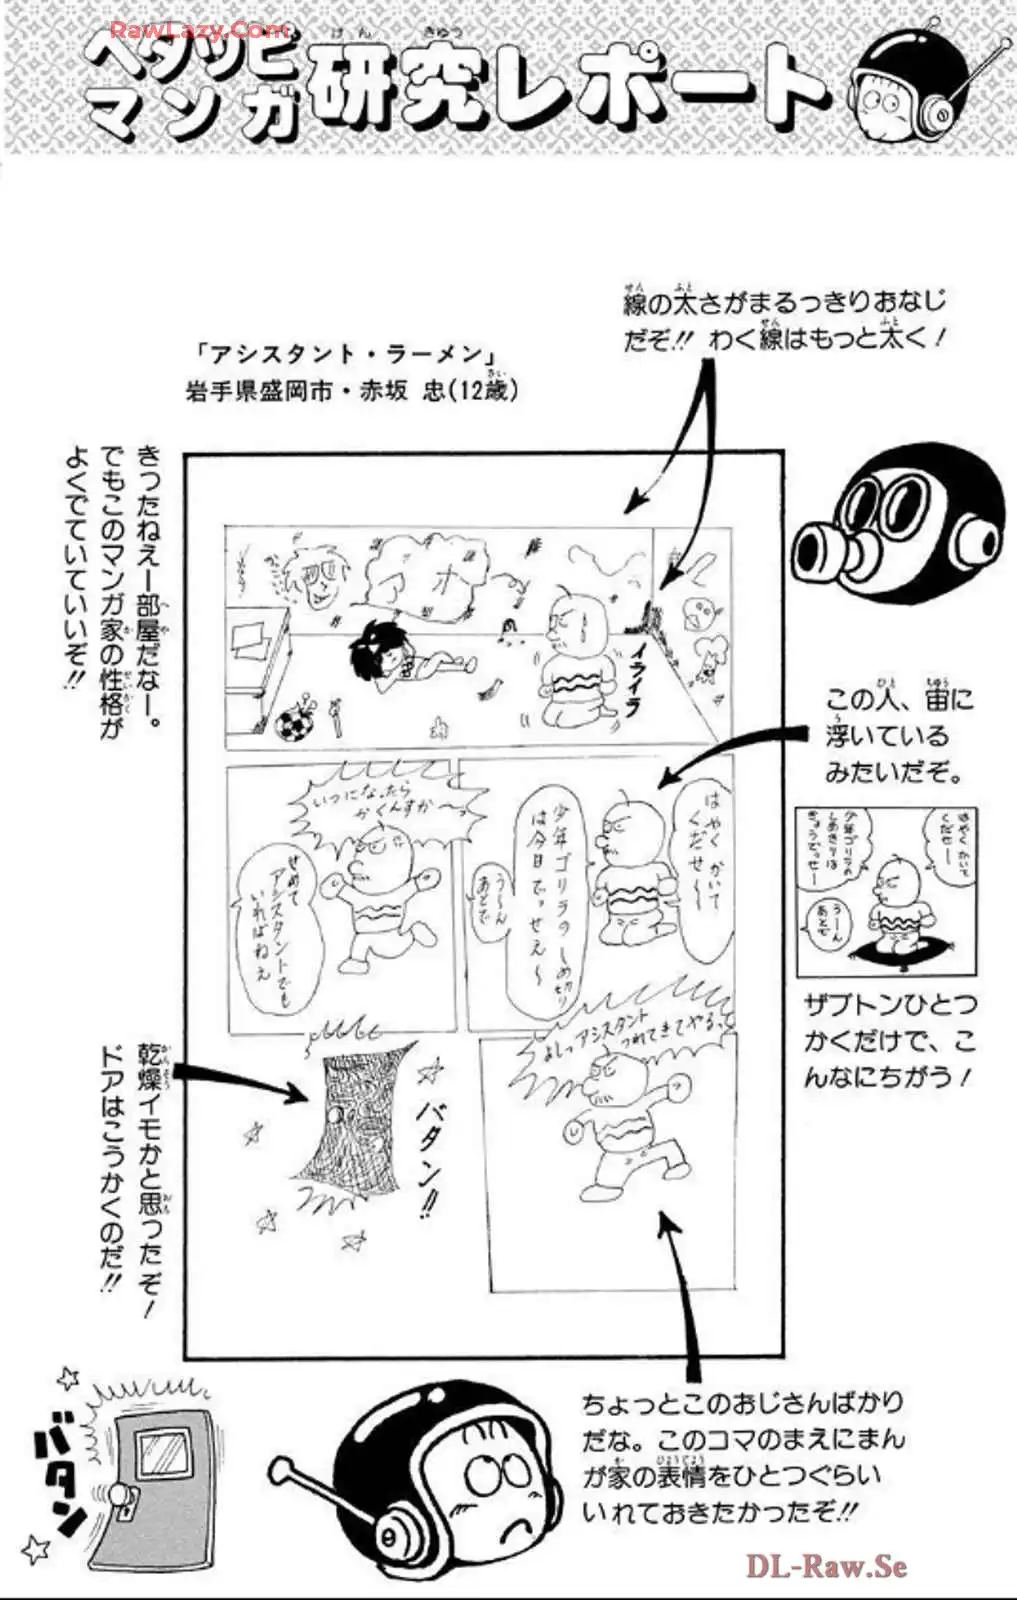 RawLazy.Com
ヘタッピ
マンガ
研究レポート
けん きゅう
線の太さがまるっきりおなじ
だぞ!! わく線はもっと太く!
「アシスタント・ラーメン」
岩手県盛岡市・赤坂 忠(12歳)
きったねえー部屋だなー。
でもこのマンガ家の性格が
よくでていていいぞ!!
イライラ
この人、宙に
浮いている
みたいだぞ。
はやくかいて
くだせ〜
少年ゴリラのしめ切り
は今日でっせえ〜
うーん
あとで
いつになったら
かくんすか〜っ
せめて
アシスタントでも
いればねえ
はやくかいて
くだせー
少年ゴリラの
しめきりは
きょうでっせー
うーん
あとで
ザブトンひとつ
かくだけで、こ
んなにちがう!
よしっアシスタント
つれてきてやるっ
バタン!!
乾燥イモかと思ったぞ!
ドアはこうかくのだ!!
バタン
ちょっとこのおじさんばかり
だな。このコマのまえにまん
が家の表情をひとつぐらい
いれておきたかったぞ!!
DL-Raw.Se